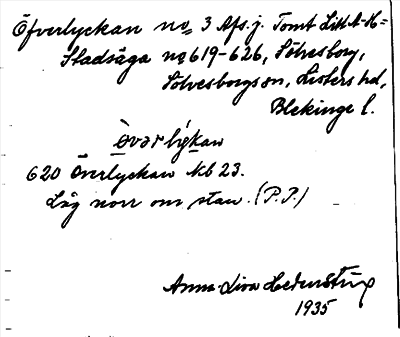 Öfverlyckan no 3 Afs. j. Tomt Litt A-H=
Stadsäga no 619-626, Sölvesborg,
Sölvesborgs sn, Listers hd,
Blekinge l.
Överlykan
620 Överlyckan Kb 23.
Låg norr om stan. (P.P.)
Anna-Lisa Hedenström
1935